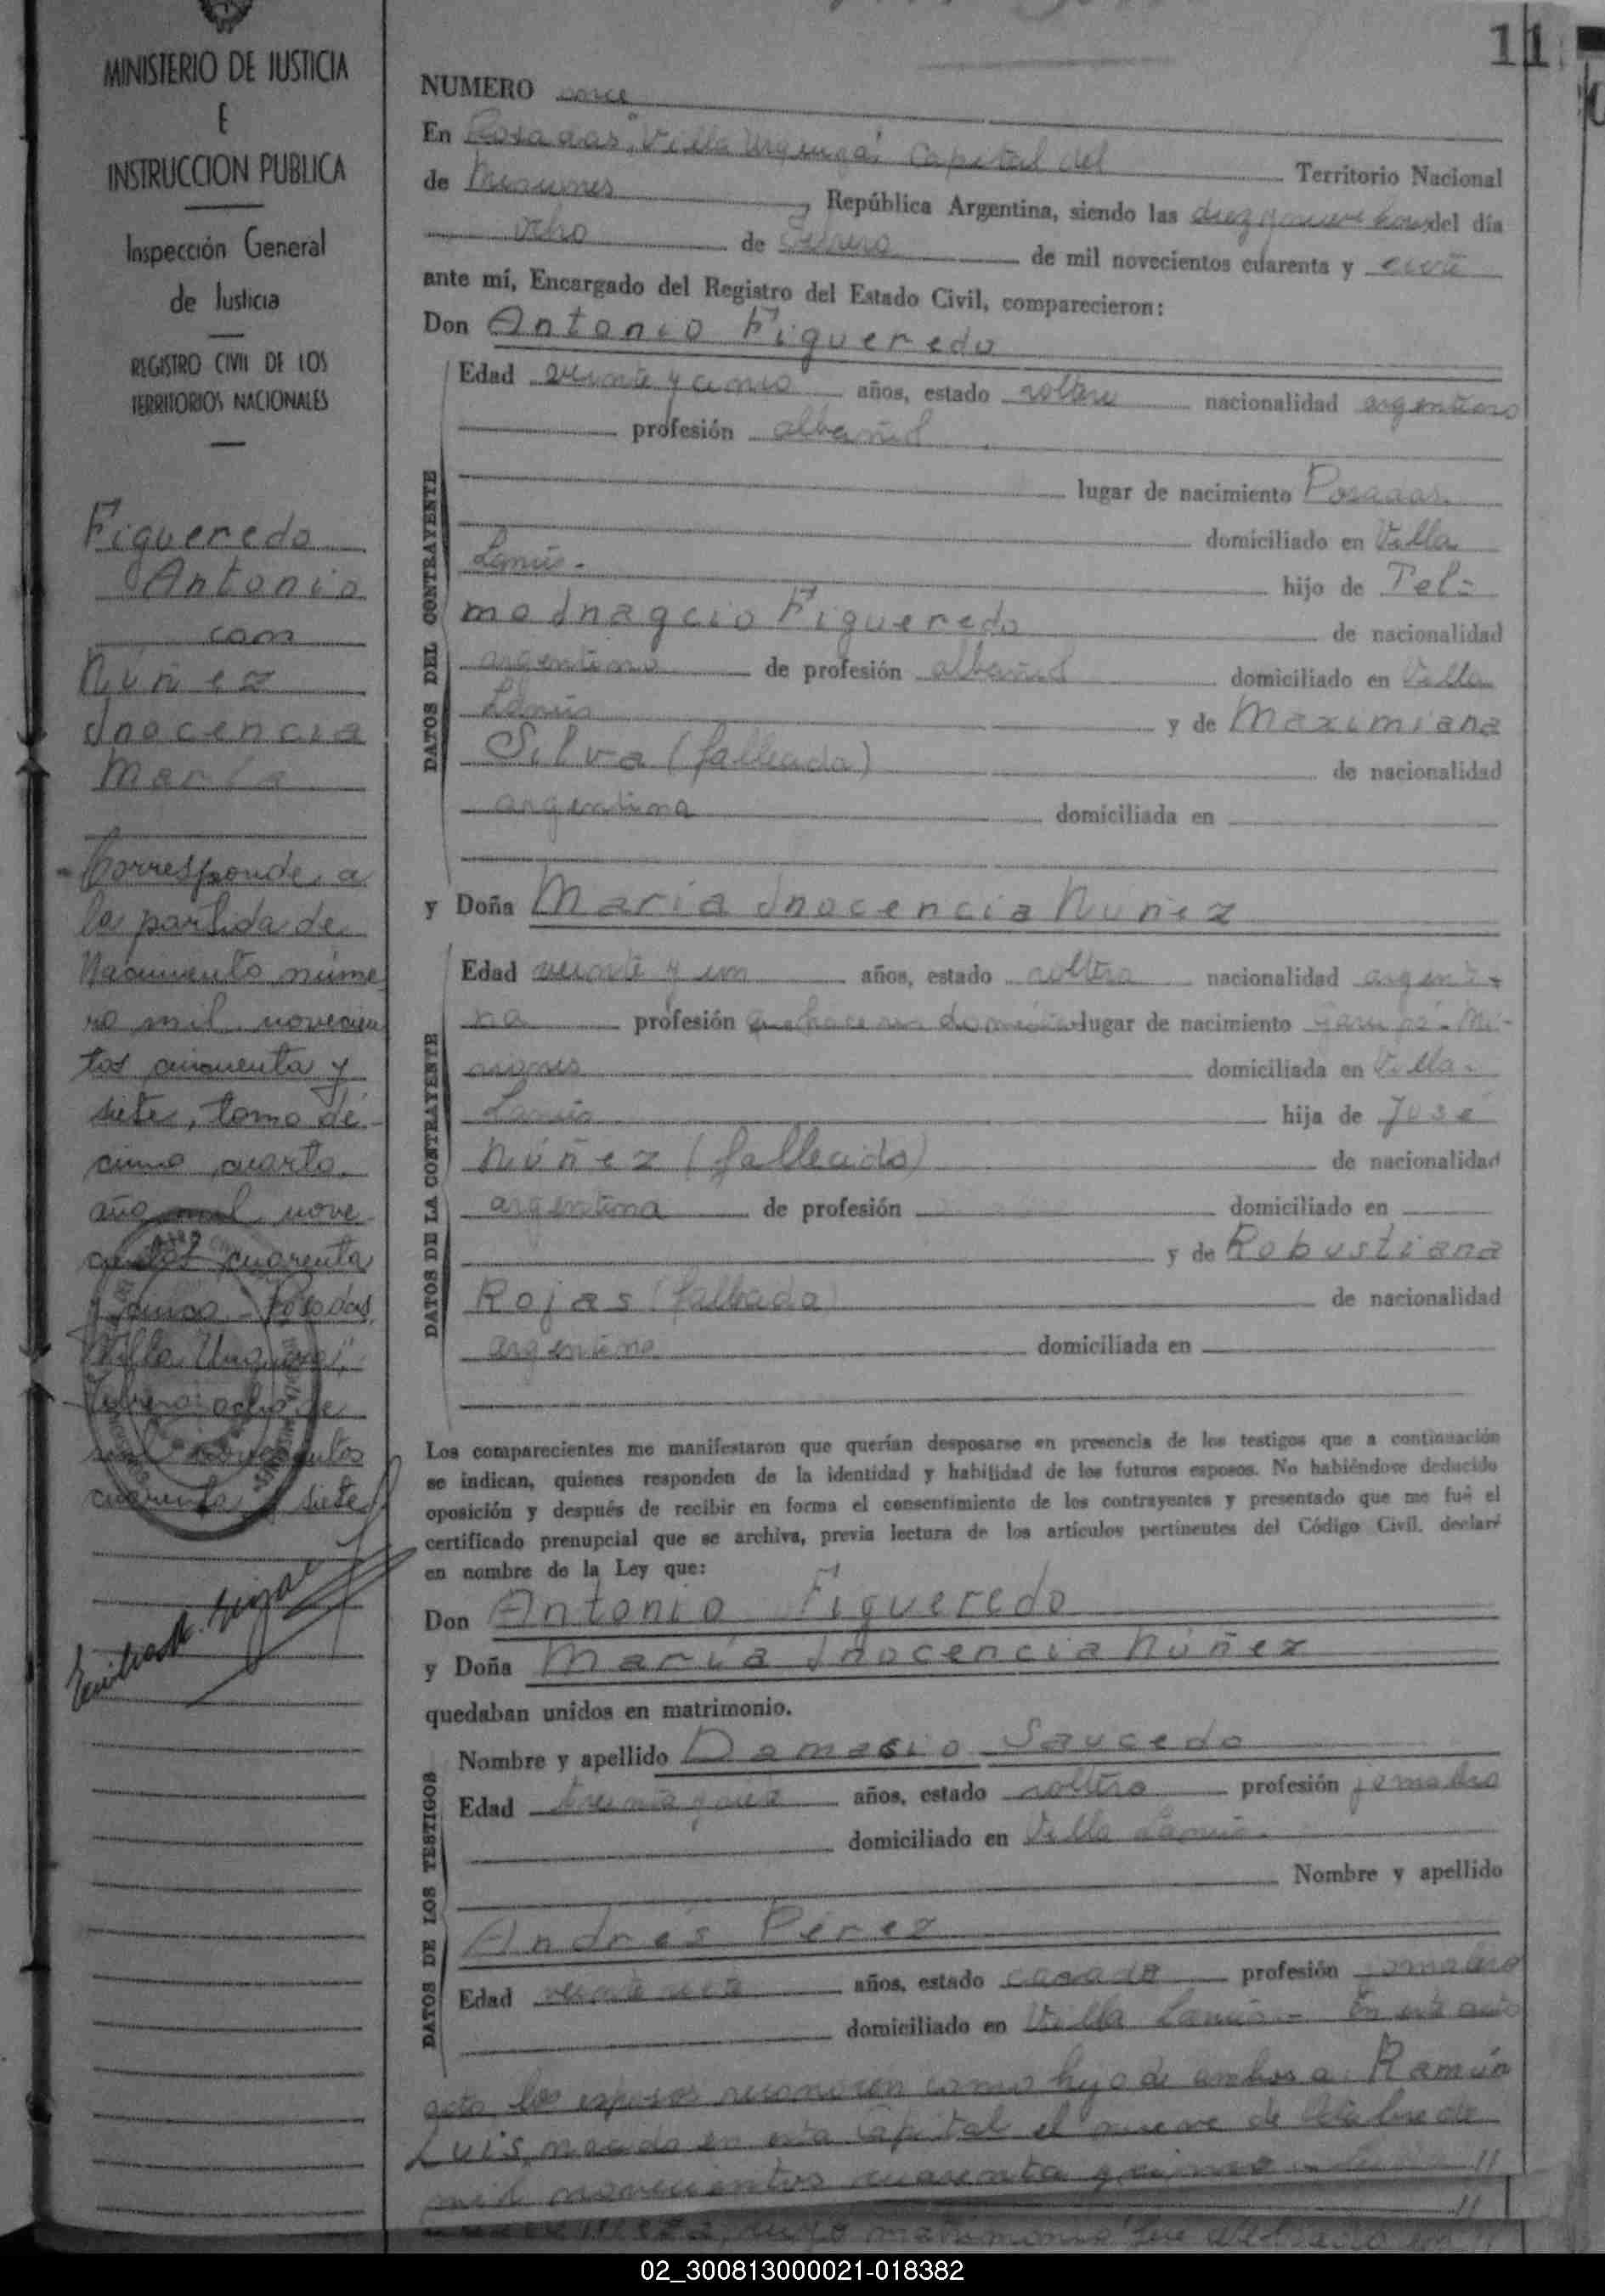 11
MINISTERIO DE JUSTICIA
E
INSTRUCCION PUBLICA
Inspección General
de Justicia
REGISTRO CIVIL DE LOS
TERRITORIOS NACIONALES
Figueredo
Antonio
con
Núñez
Inocencia
María
Corresponde a
la partida de
Nacimiento núme
ro mil novecien
tos cincuenta y
siete, tomo dé-
cimo cuarto
año mil nove
cientos cuarenta
y cinco - Posadas
"Villa Urquiza",
Febrero ocho de
mil novecientos
cuarenta y siete
NUMERO once
En Posadas, "Villa Urquiza" Capital del Territorio Nacional
de Misiones, República Argentina, siendo las diez y nueve horas del día
ocho de Febrero de mil novecientos cuarenta y siete
ante mí, Encargado del Registro del Estado Civil, comparecieron:
Don Antonio Figueredo
DATOS DEL CONTRAYENTE
Edad veinte y cinco años, estado soltero nacionalidad argentino
profesión albañil
lugar de nacimiento Posadas
domiciliado en Villa
Lanús.- hijo de Tel-
mo Inagcio Figueredo de nacionalidad
argentino de profesión albañil domiciliado en Villa
Lanús y de Maximiana
Silva (fallecida) de nacionalidad
argentina domiciliada en
y Doña María Inocencia Nuñez
DATOS DE LA CONTRAYENTE
Edad veinte y un años, estado soltera nacionalidad argenti-
na profesión quehaceres domésticos lugar de nacimiento Garupá- Mi-
siones domiciliada en Villa
Lanús hija de José
Núñez (fallecido) de nacionalidad
argentina de profesión domiciliado en
y de Robustiana
Rojas (fallecida) de nacionalidad
argentina domiciliada en
Los comparecientes me manifestaron que querían desposarse en presencia de los testigos que a continuación
se indican, quienes responden de la identidad y habilidad de los futuros esposos. No habiéndose deducido
oposición y después de recibir en forma el consentimiento de los contrayentes y presentado que me fué el
certificado prenupcial que se archiva, previa lectura de los artículos pertinentes del Código Civil, declaré
en nombre de la Ley que:
Don Antonio Figueredo
y Doña María Inocencia Núñez
quedaban unidos en matrimonio.
DATOS DE LOS TESTIGOS
Nombre y apellido Damasio Saucedo
Edad treinta y siete años, estado soltero profesión jornalero
domiciliado en Villa Lanús.
Nombre y apellido
Andrés Pérez
Edad veinte siete años, estado casado profesión jornalero
domiciliado en Villa Lanús - En este acto
acto los esposos reconocen como hijo de ambos a: Ramón
Luis, nacido en esta Capital el nueve de Octubre de
mil novecientos cuarenta y cinco //
cuyo matrimonio fue celebrado //
02_300813000021-018382